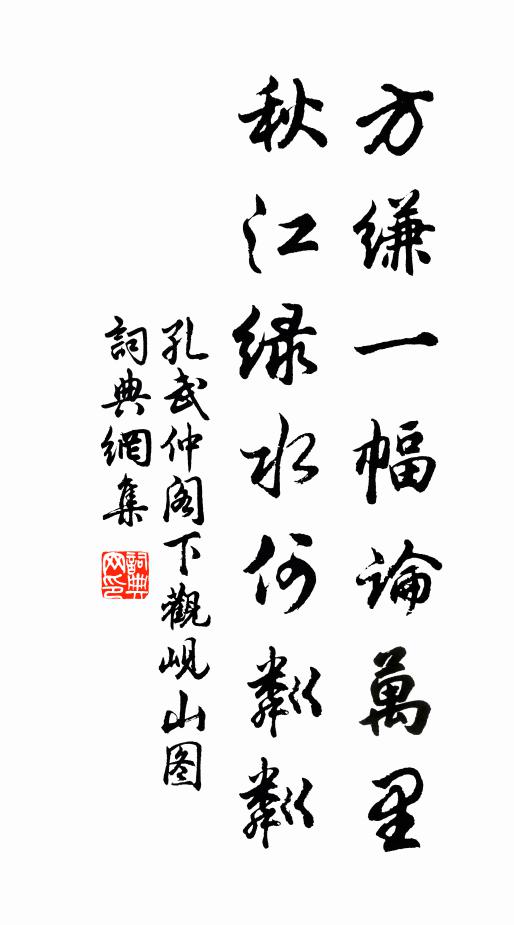 方縑一幅論萬里
秋江綠水何粼粼
孔武仲阁下觀峴山图
詞典網集
詞典
网印